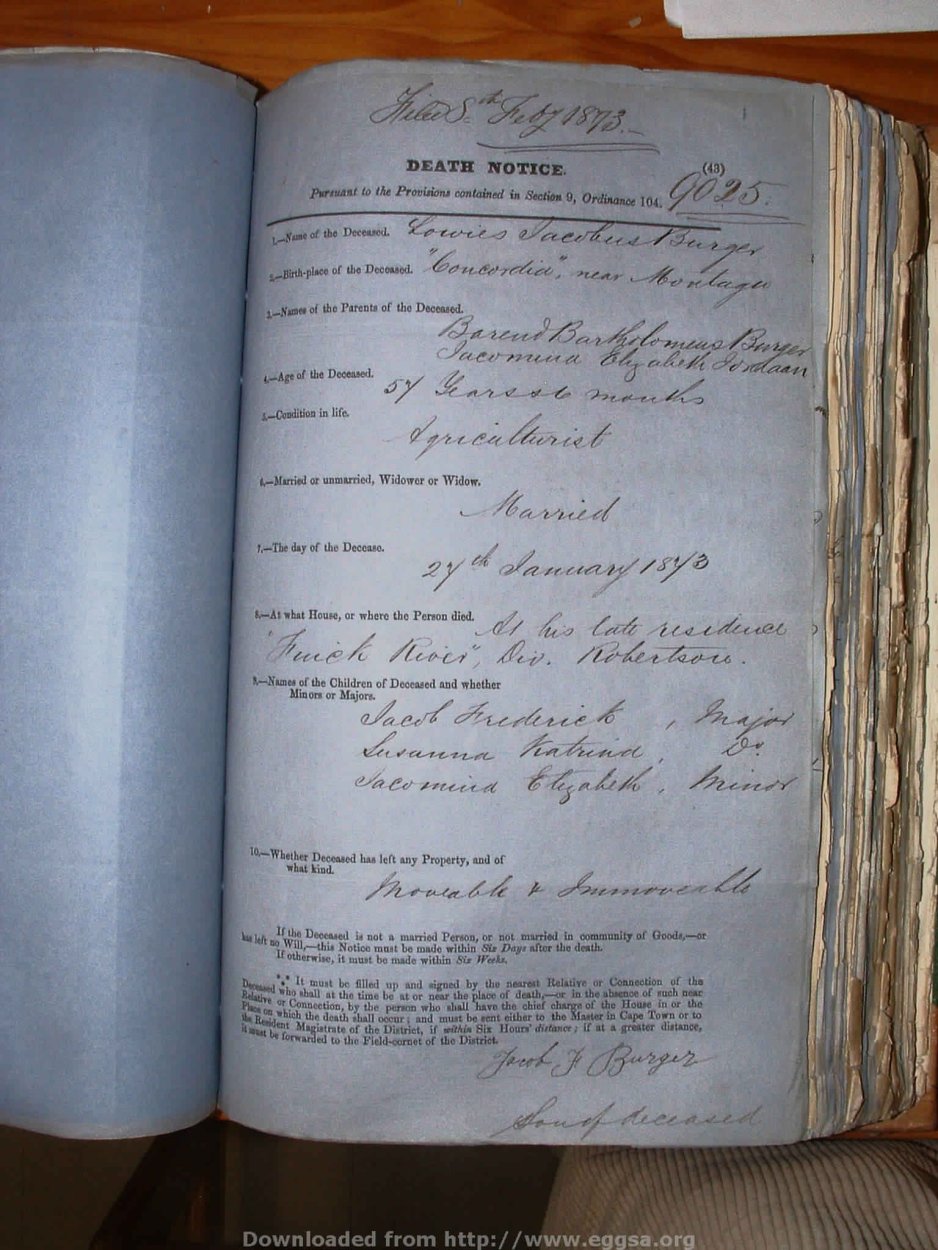 Filed 8th Feby 1873.
DEATH NOTICE.
(43)
9025.
Pursuant to the Provisions contained in Section 9, Ordinance 104.
1.—Name of the Deceased. Lowies Jacobus Burger
2.—Birth-place of the Deceased. "Concordia", near Montagu
3.—Names of the Parents of the Deceased.
Barend Bartholomeus Burger
Jacomina Elizabeth Jordaan
4.—Age of the Deceased.
57 Years 6 months
5.—Condition in life.
Agriculturist
6.—Married or unmarried, Widower or Widow.
Married
7.—The day of the Decease.
27th January 1873
8.—At what House, or where the Person died. At his late residence
River", Div. Robertson.
9.—Names of the Children of Deceased and whether
Minors or Majors.
Jacob Frederick , Major
Susanna Katrina , Do.
Jacomina Elizabeth , Minor
10.—Whether Deceased has left any Property, and of
what kind.
Moveable & Immoveable
If the Deceased is not a married Person, or not married in community of Goods,—or
has left no Will,—this Notice must be made within Six Days after the death.
If otherwise, it must be made within Six Weeks.
*** It must be filled up and signed by the nearest Relative or Connection of the
Deceased who shall at the time be at or near the place of death,—or in the absence of such near
Relative or Connection, by the person who shall have the chief charge of the House in or the
Place on which the death shall occur; and must be sent either to the Master in Cape Town or to
the Resident Magistrate of the District, if within Six Hours' distance; if at a greater distance,
it must be forwarded to the Field-cornet of the District.
Jacob F Burger
Son of deceased
Downloaded from http://www.eggsa.org